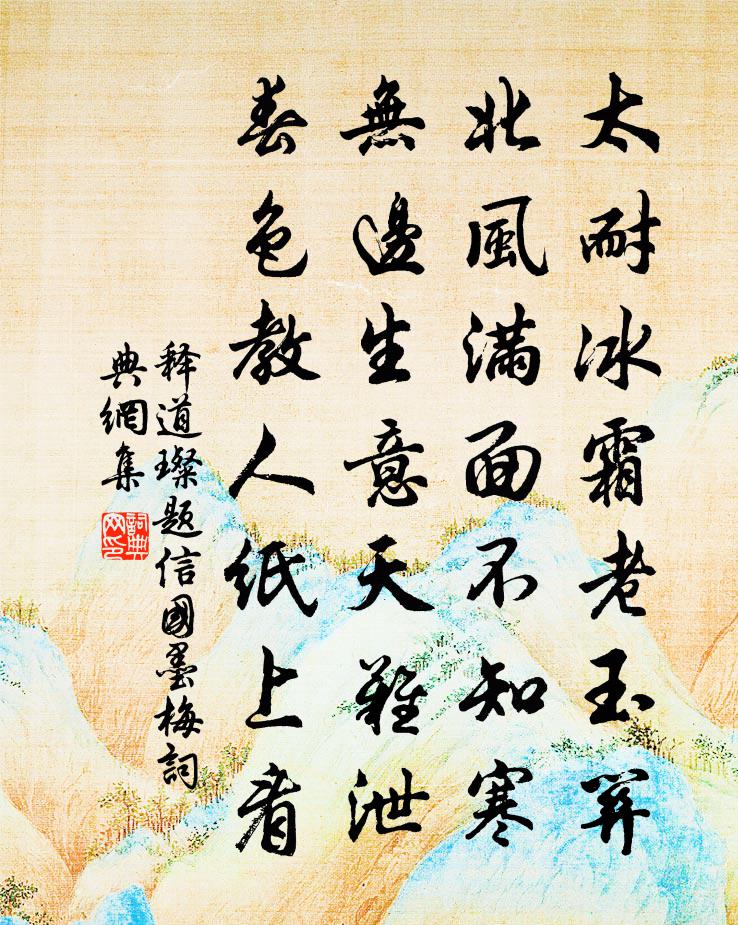 太耐冰霜老玉
北風滿面不知寒
無邊生意天難泄
春色教人紙上看
釋道璨題信國墨梅詞
典網集
詞典
网印